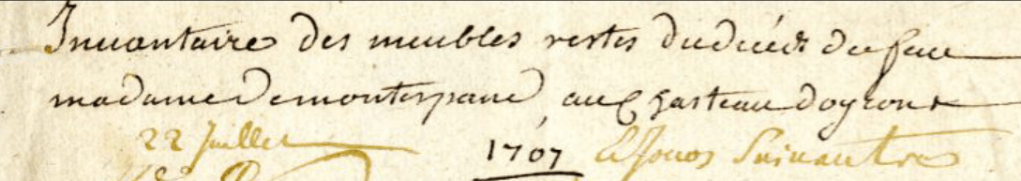 Inuantaire des meubles restes du déces de feue
madame Demontespane au Chasteau doyron
22 Juillet 1707 & Jours Suivantes